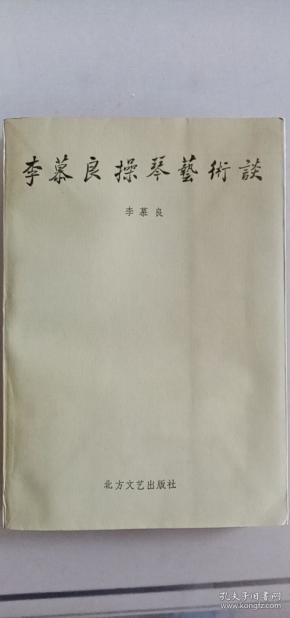 李慕良操琴藝術談
李慕良
北方文艺出版社
孔夫子旧书网